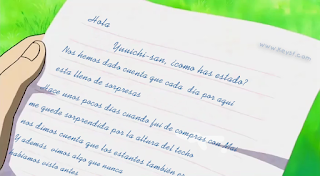 Hola
Yuuichi-san, ¿como has estado?
Nos hemos dado cuenta que cada día por aquí
esta lleno de sorpresas
Hace unos pocos días cuando fui de compras con
me quede sorprendida por la altura del techo
nos dimos cuenta que los estantes también
Y además vimos algo que nunca
habíamos visto antes